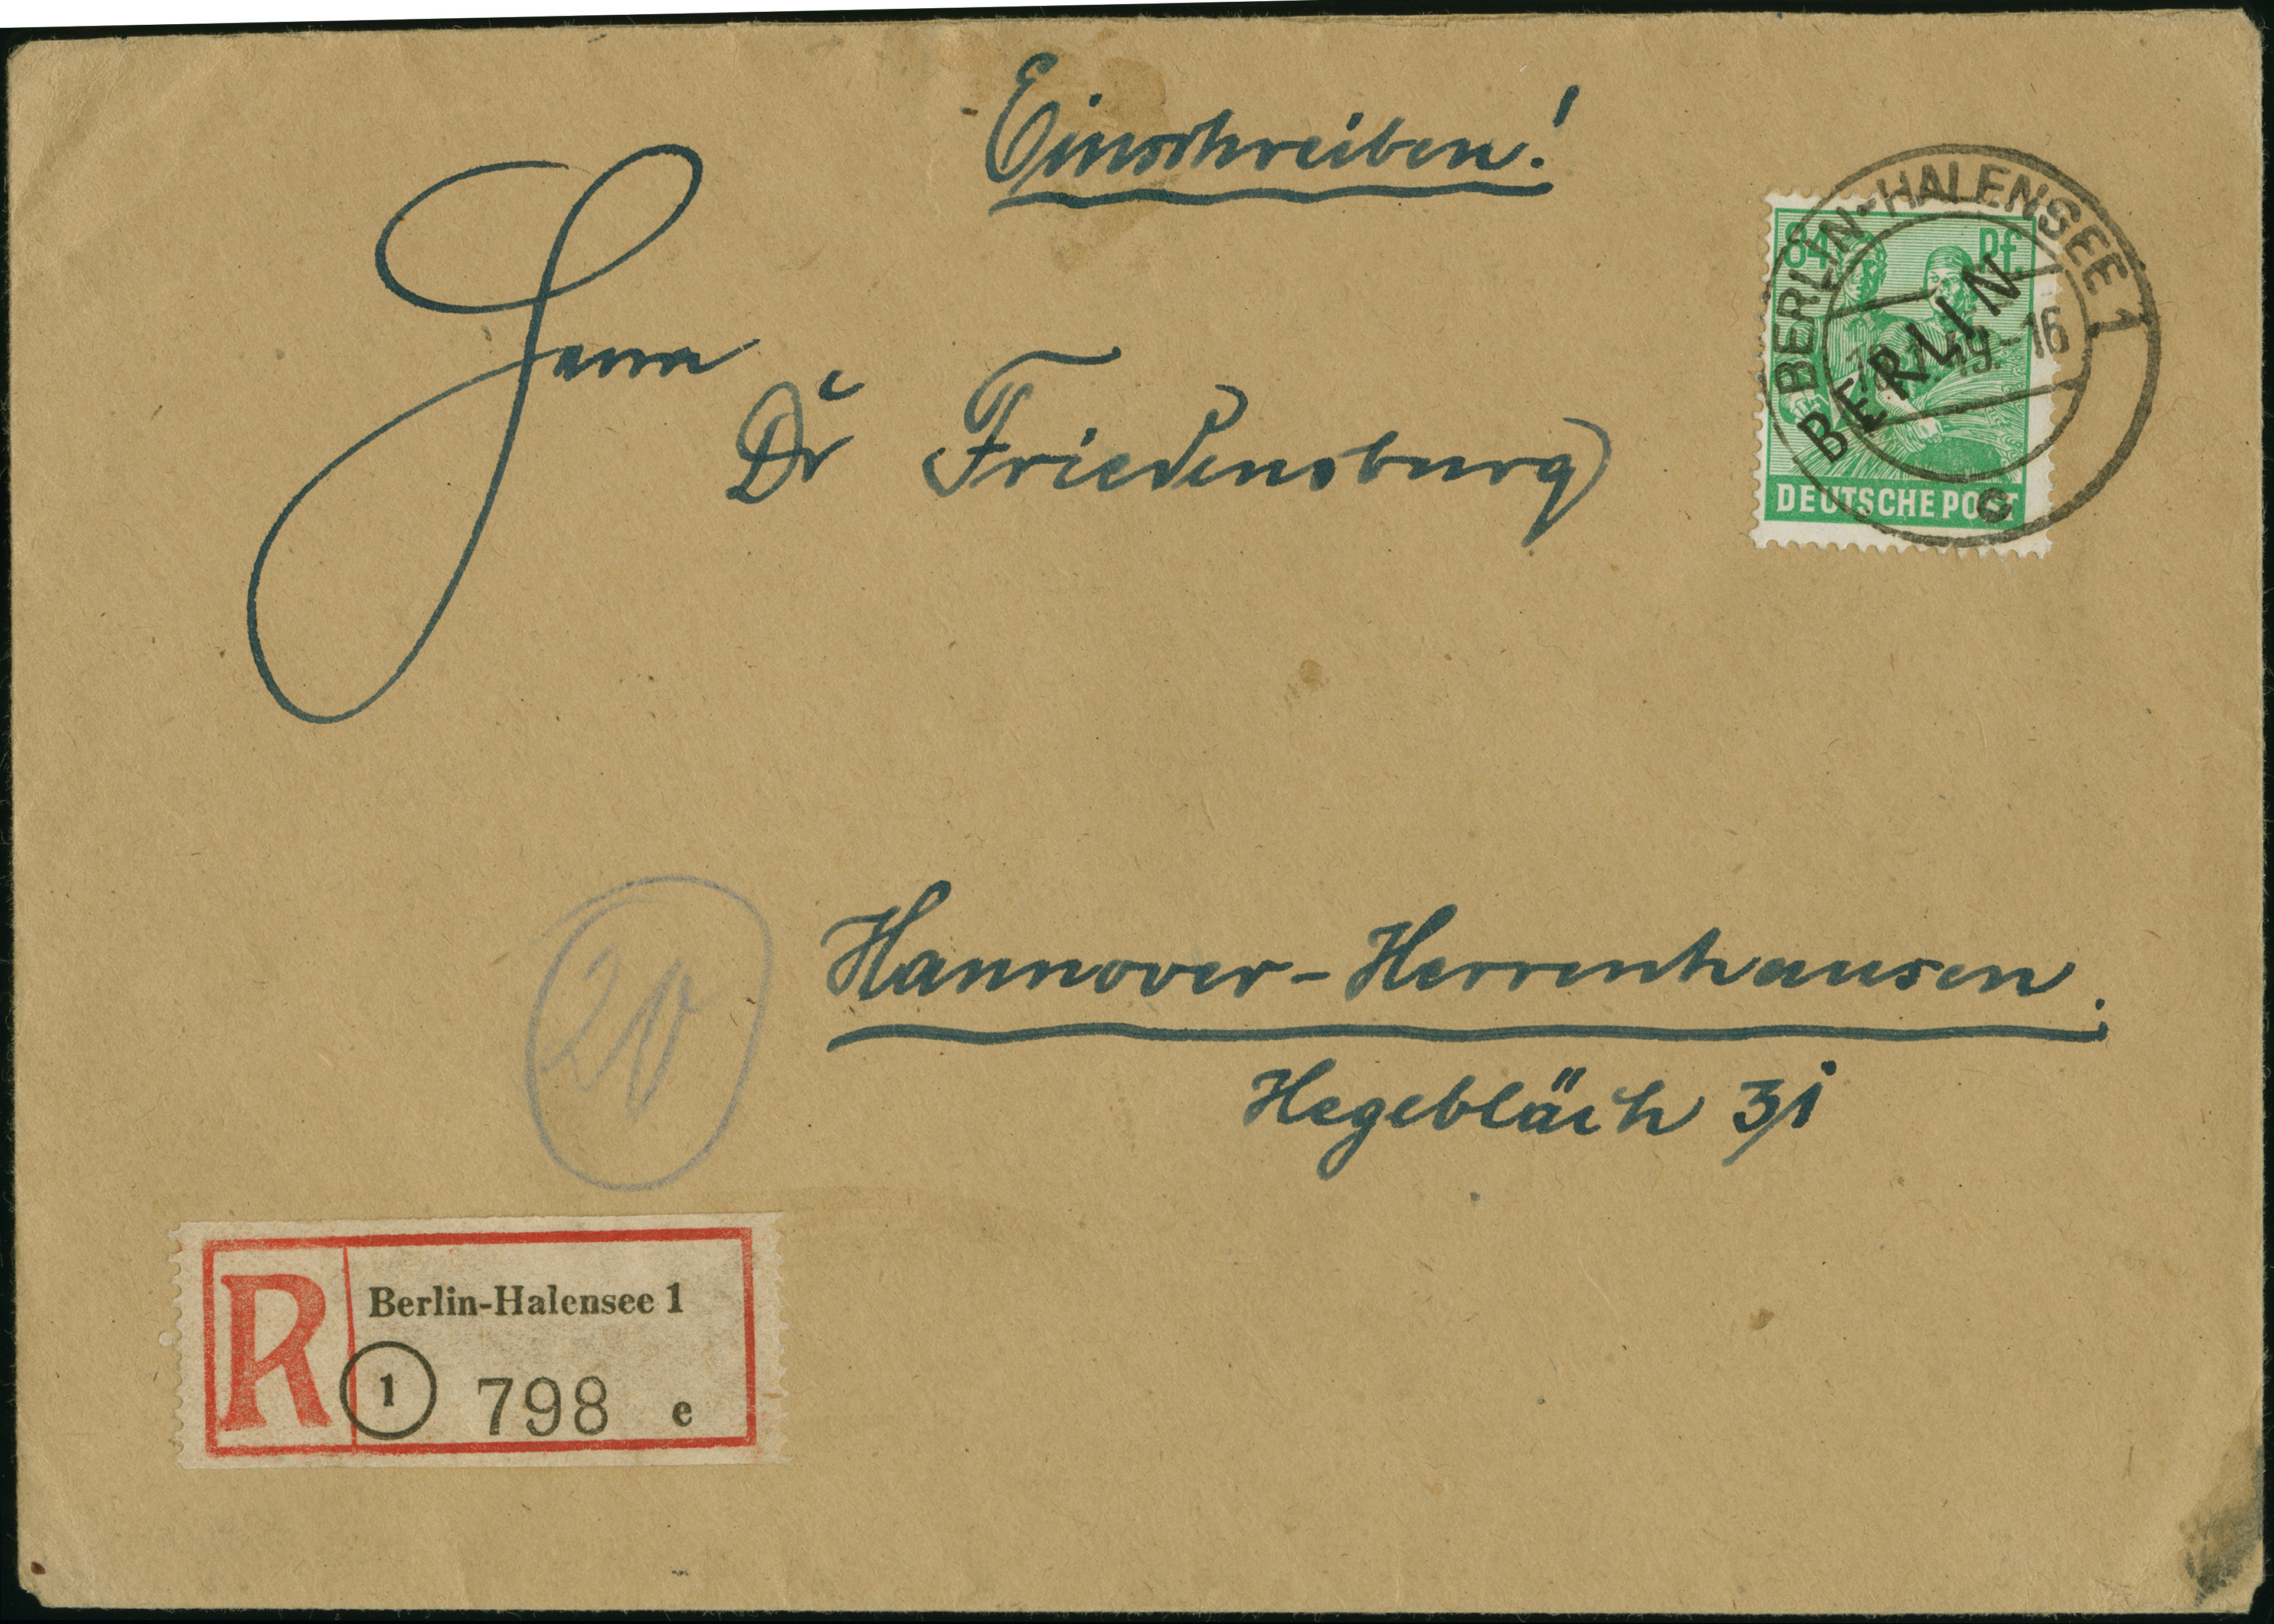 Einschreiben!
Herrn
Dr Friedensburg
84 Pf.
BERLIN
DEUTSCHE POST
BERLIN-HALENSEE 1
-16
c
20
Hannover-Herrenhausen.
Hegebläch 31
R
Berlin-Halensee 1
1 798 e